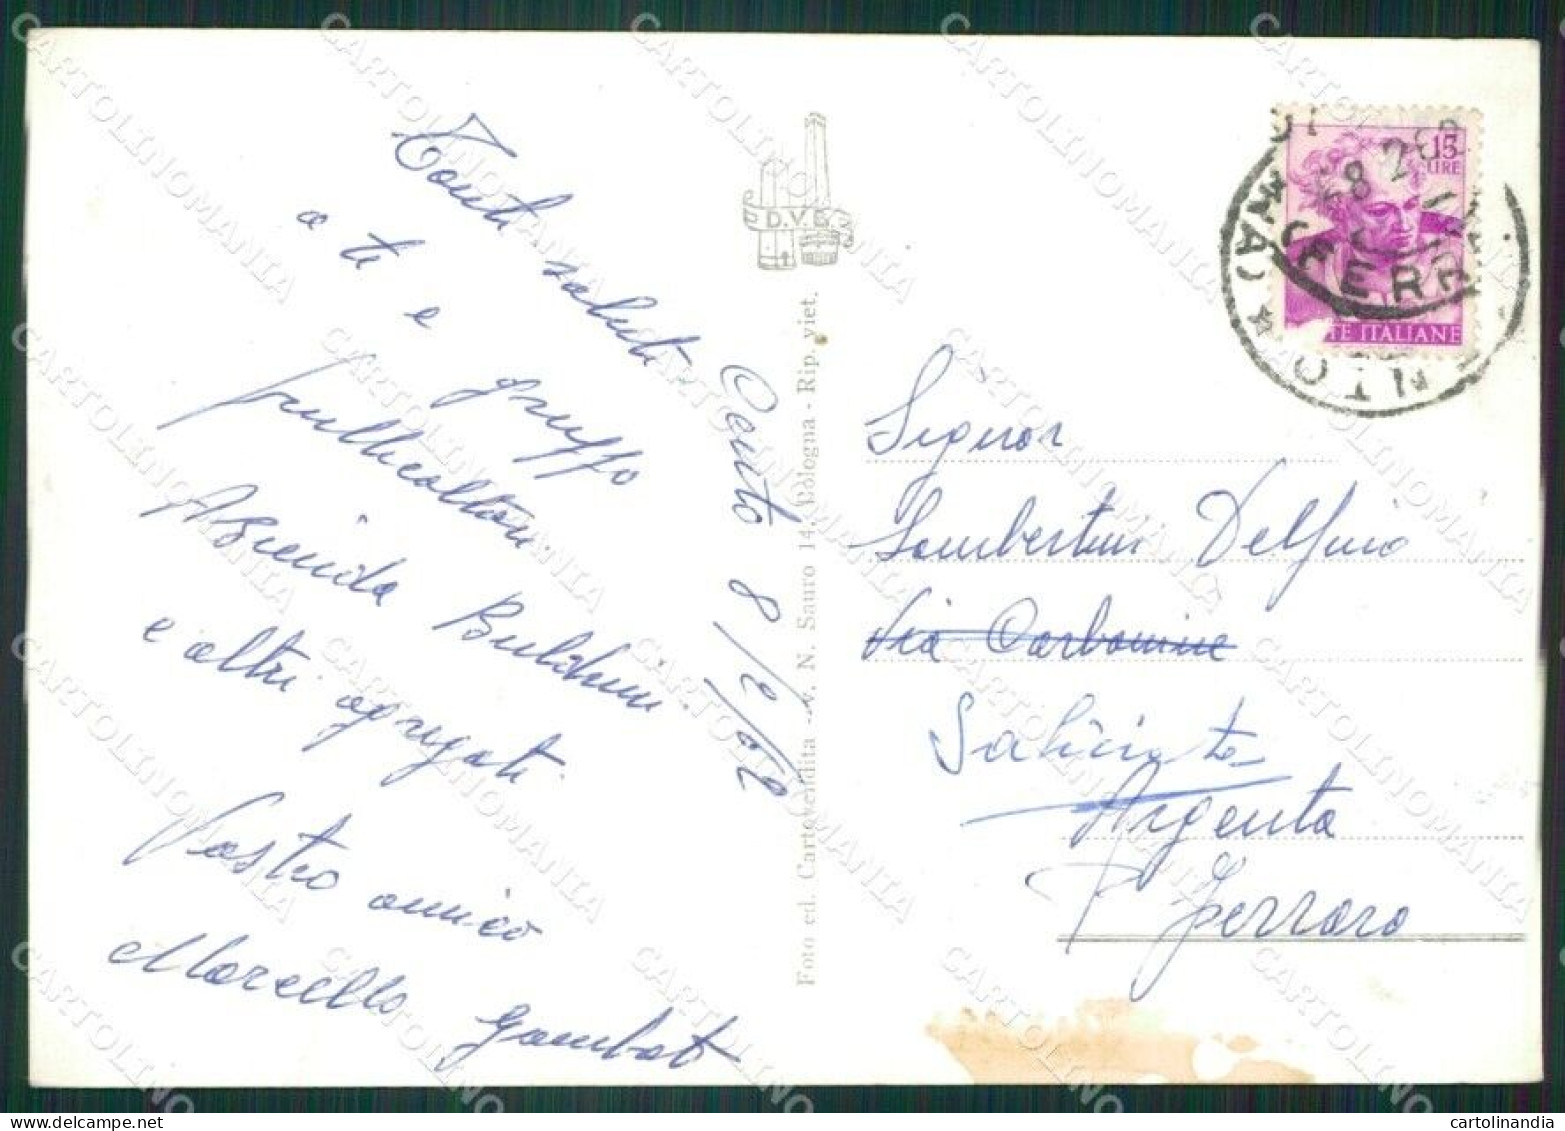 Tanti saluti
a te e gruppo
frutticoltori
Azienda
e altri agregati.
Vostro amico
Marcello
Cento 8/2/62
D.V.B.
Foto ed. Cartovendita - V. N. Sauro 14, Bologna - Rip. viet.
15
LIRE
TE ITALIANE
FERR
Signor
Lambertini Delfino
Via
Argenta
Ferrara
CARTOLINOMANIA
cartolinandia